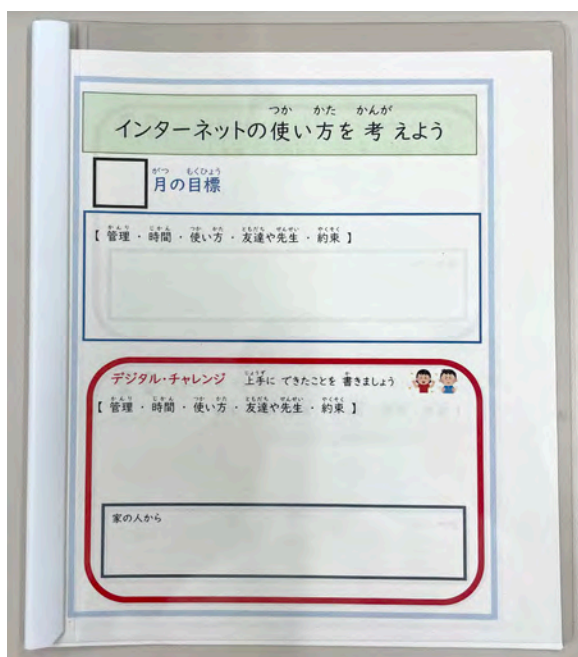 インターネットの使い方を考えよう
月の目標
【 管理 ・ 時間 ・ 使い方 ・ 友達や先生 ・ 約束 】
デジタル・チャレンジ 上手に できたことを 書きましょう
【 管理 ・ 時間 ・ 使い方 ・ 友達や先生 ・ 約束 】
家の人から